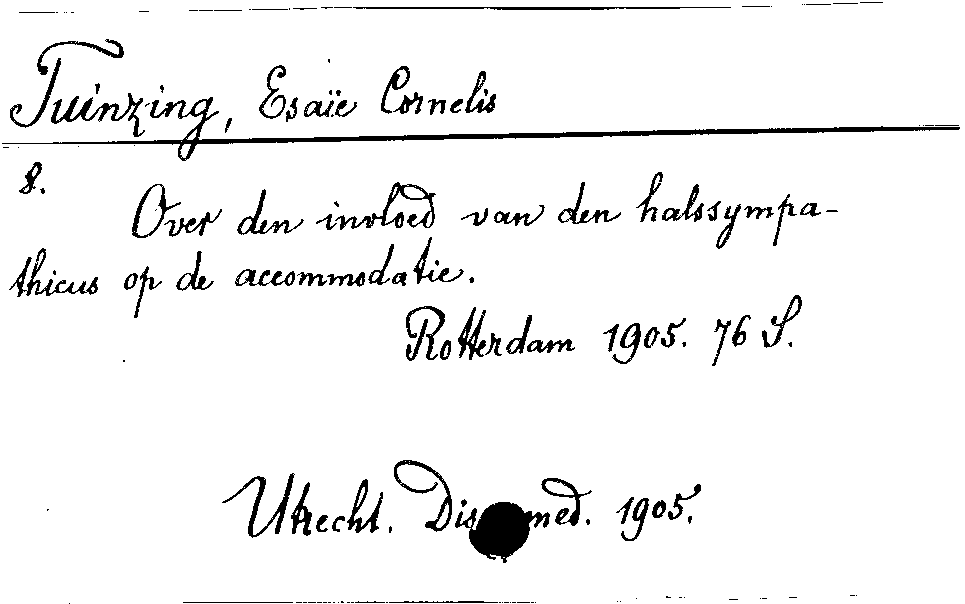 Tuinzing, Esaïe Cornelis
8.
Over den invloed van den halssympa-
thicus op de accommodatie.
Rotterdam 1905. 76 S.
Utrecht. Dis med. 1905.